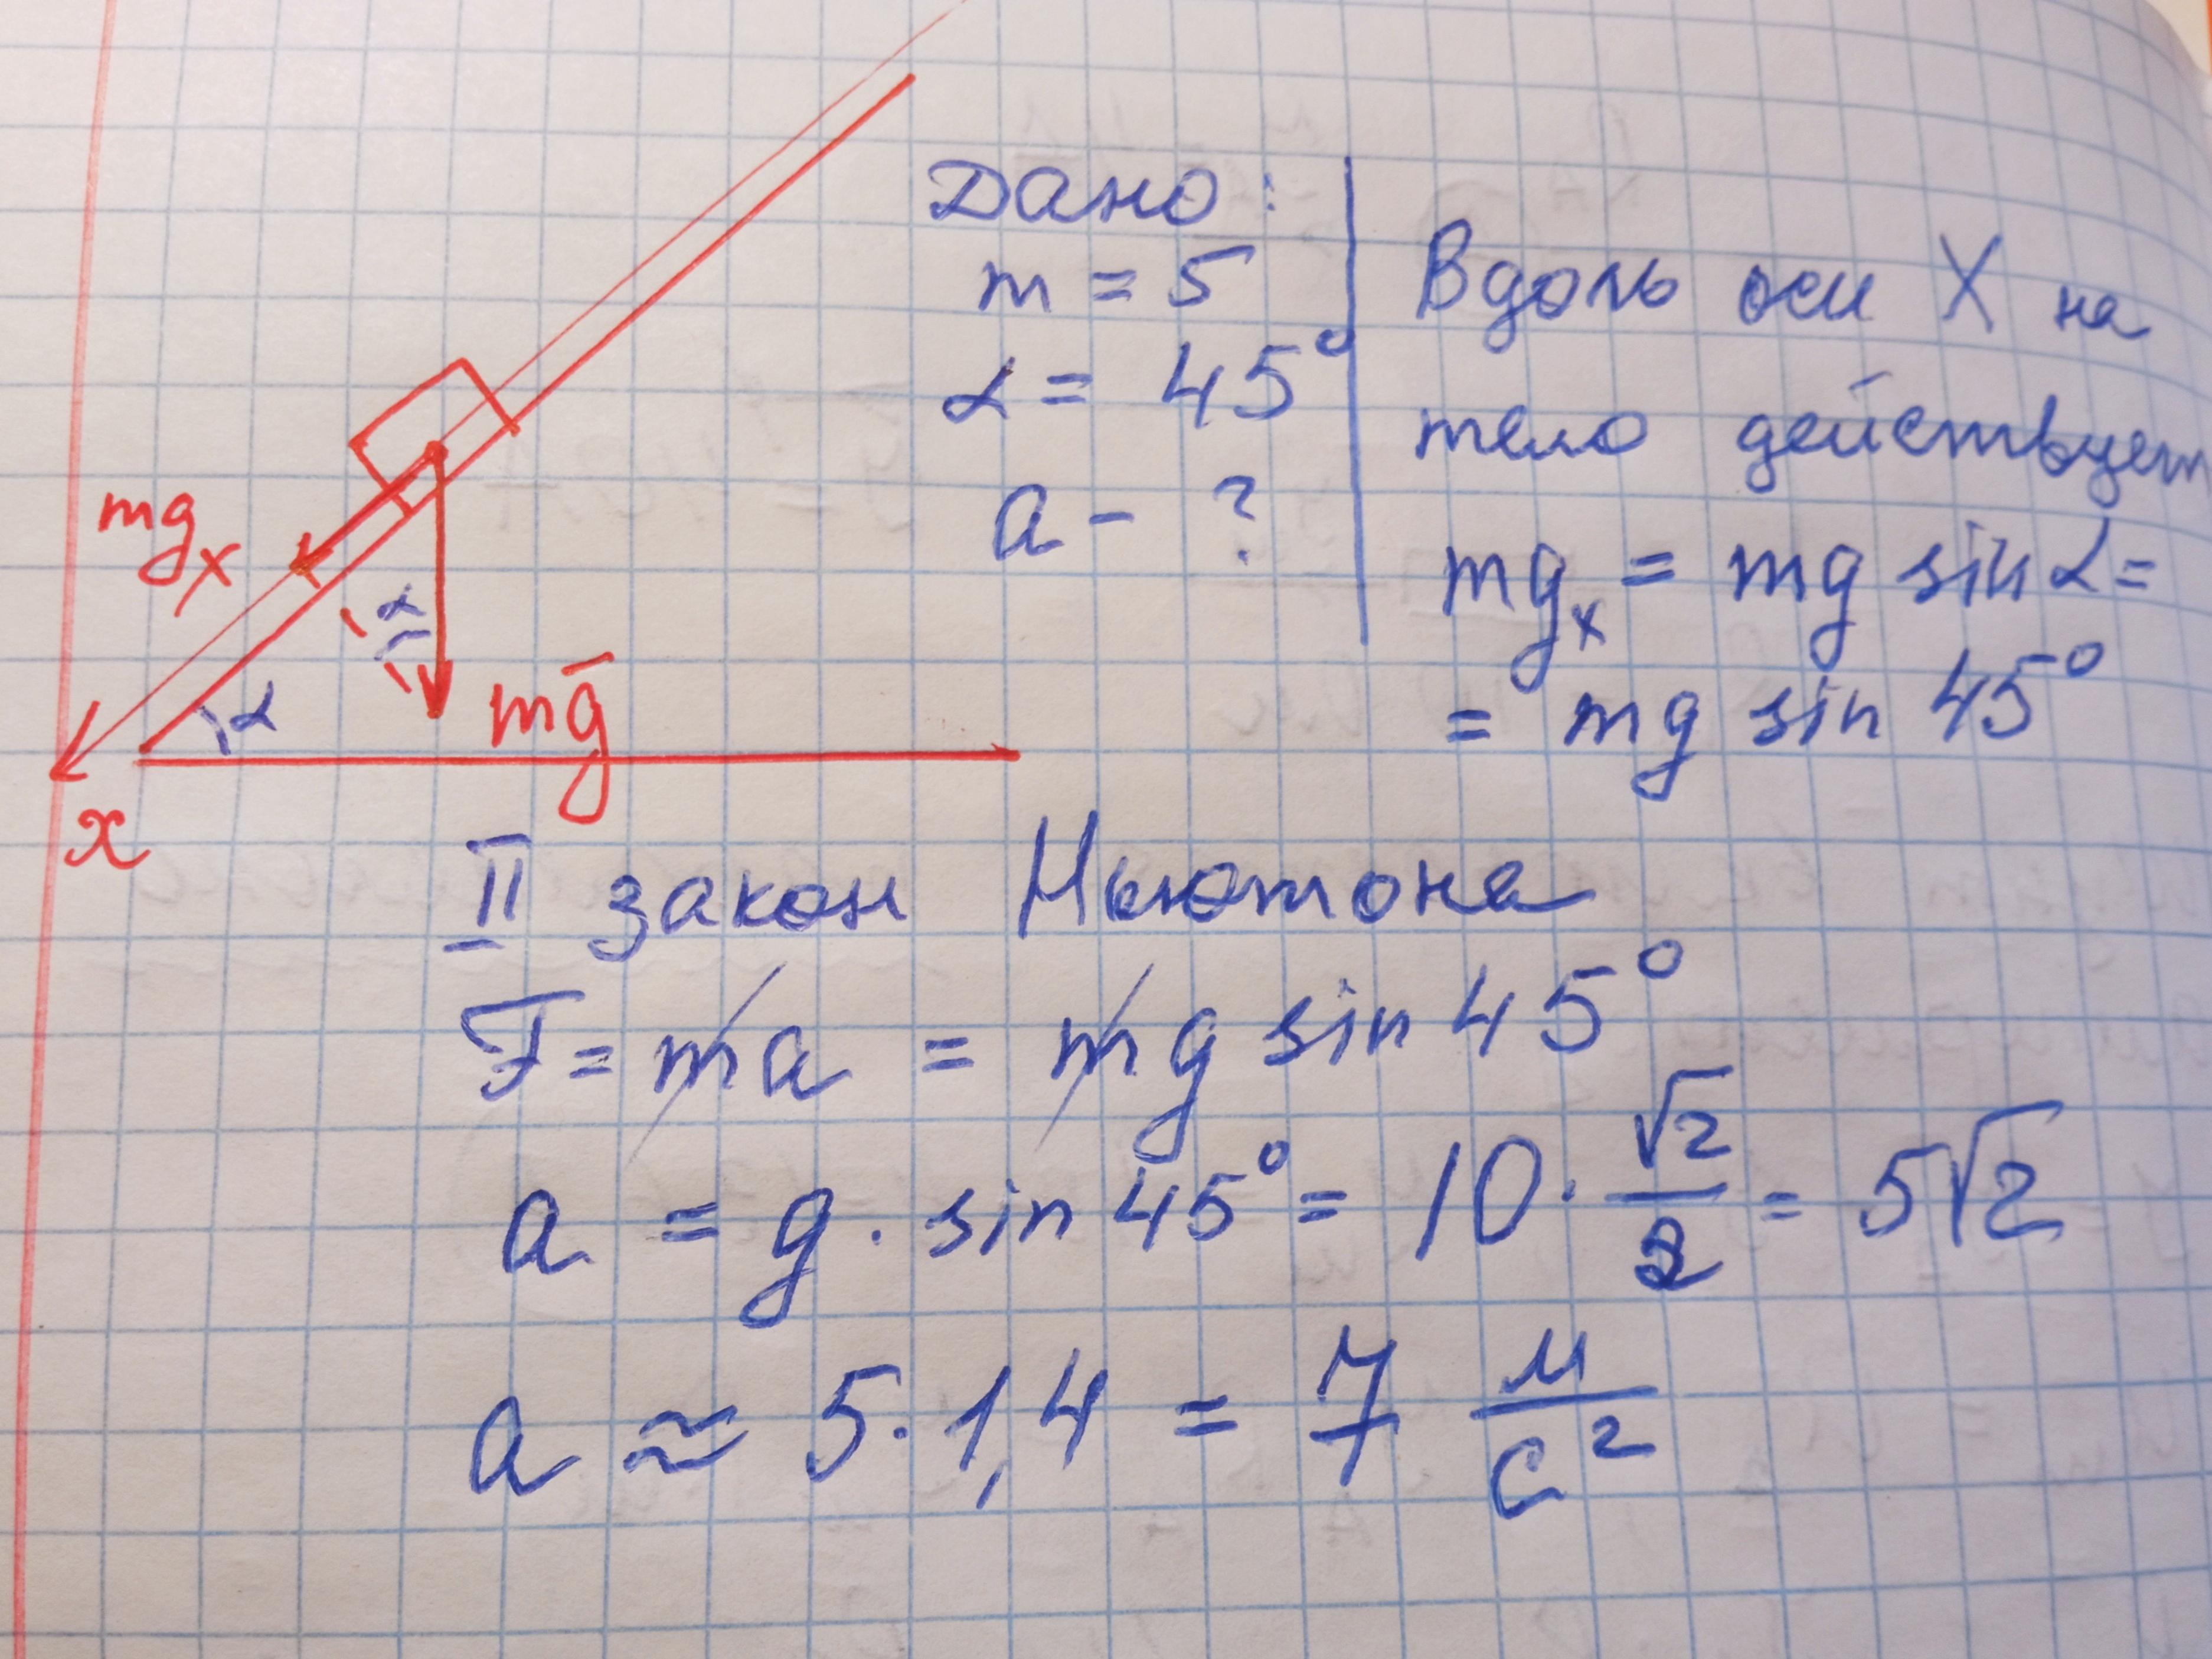 Дано:
m = 5
α = 45°
a - ?
Вдоль оси X на
тело действует
mgₓ = mg sin α =
= mg sin 45°
mgₓ
α
α
mg̅
x
II закон Ньютона
F = ma = mg sin 45°
a = g · sin 45° = 10 · √2/2 = 5√2
a ≈ 5 · 1,4 = 7 м/с²